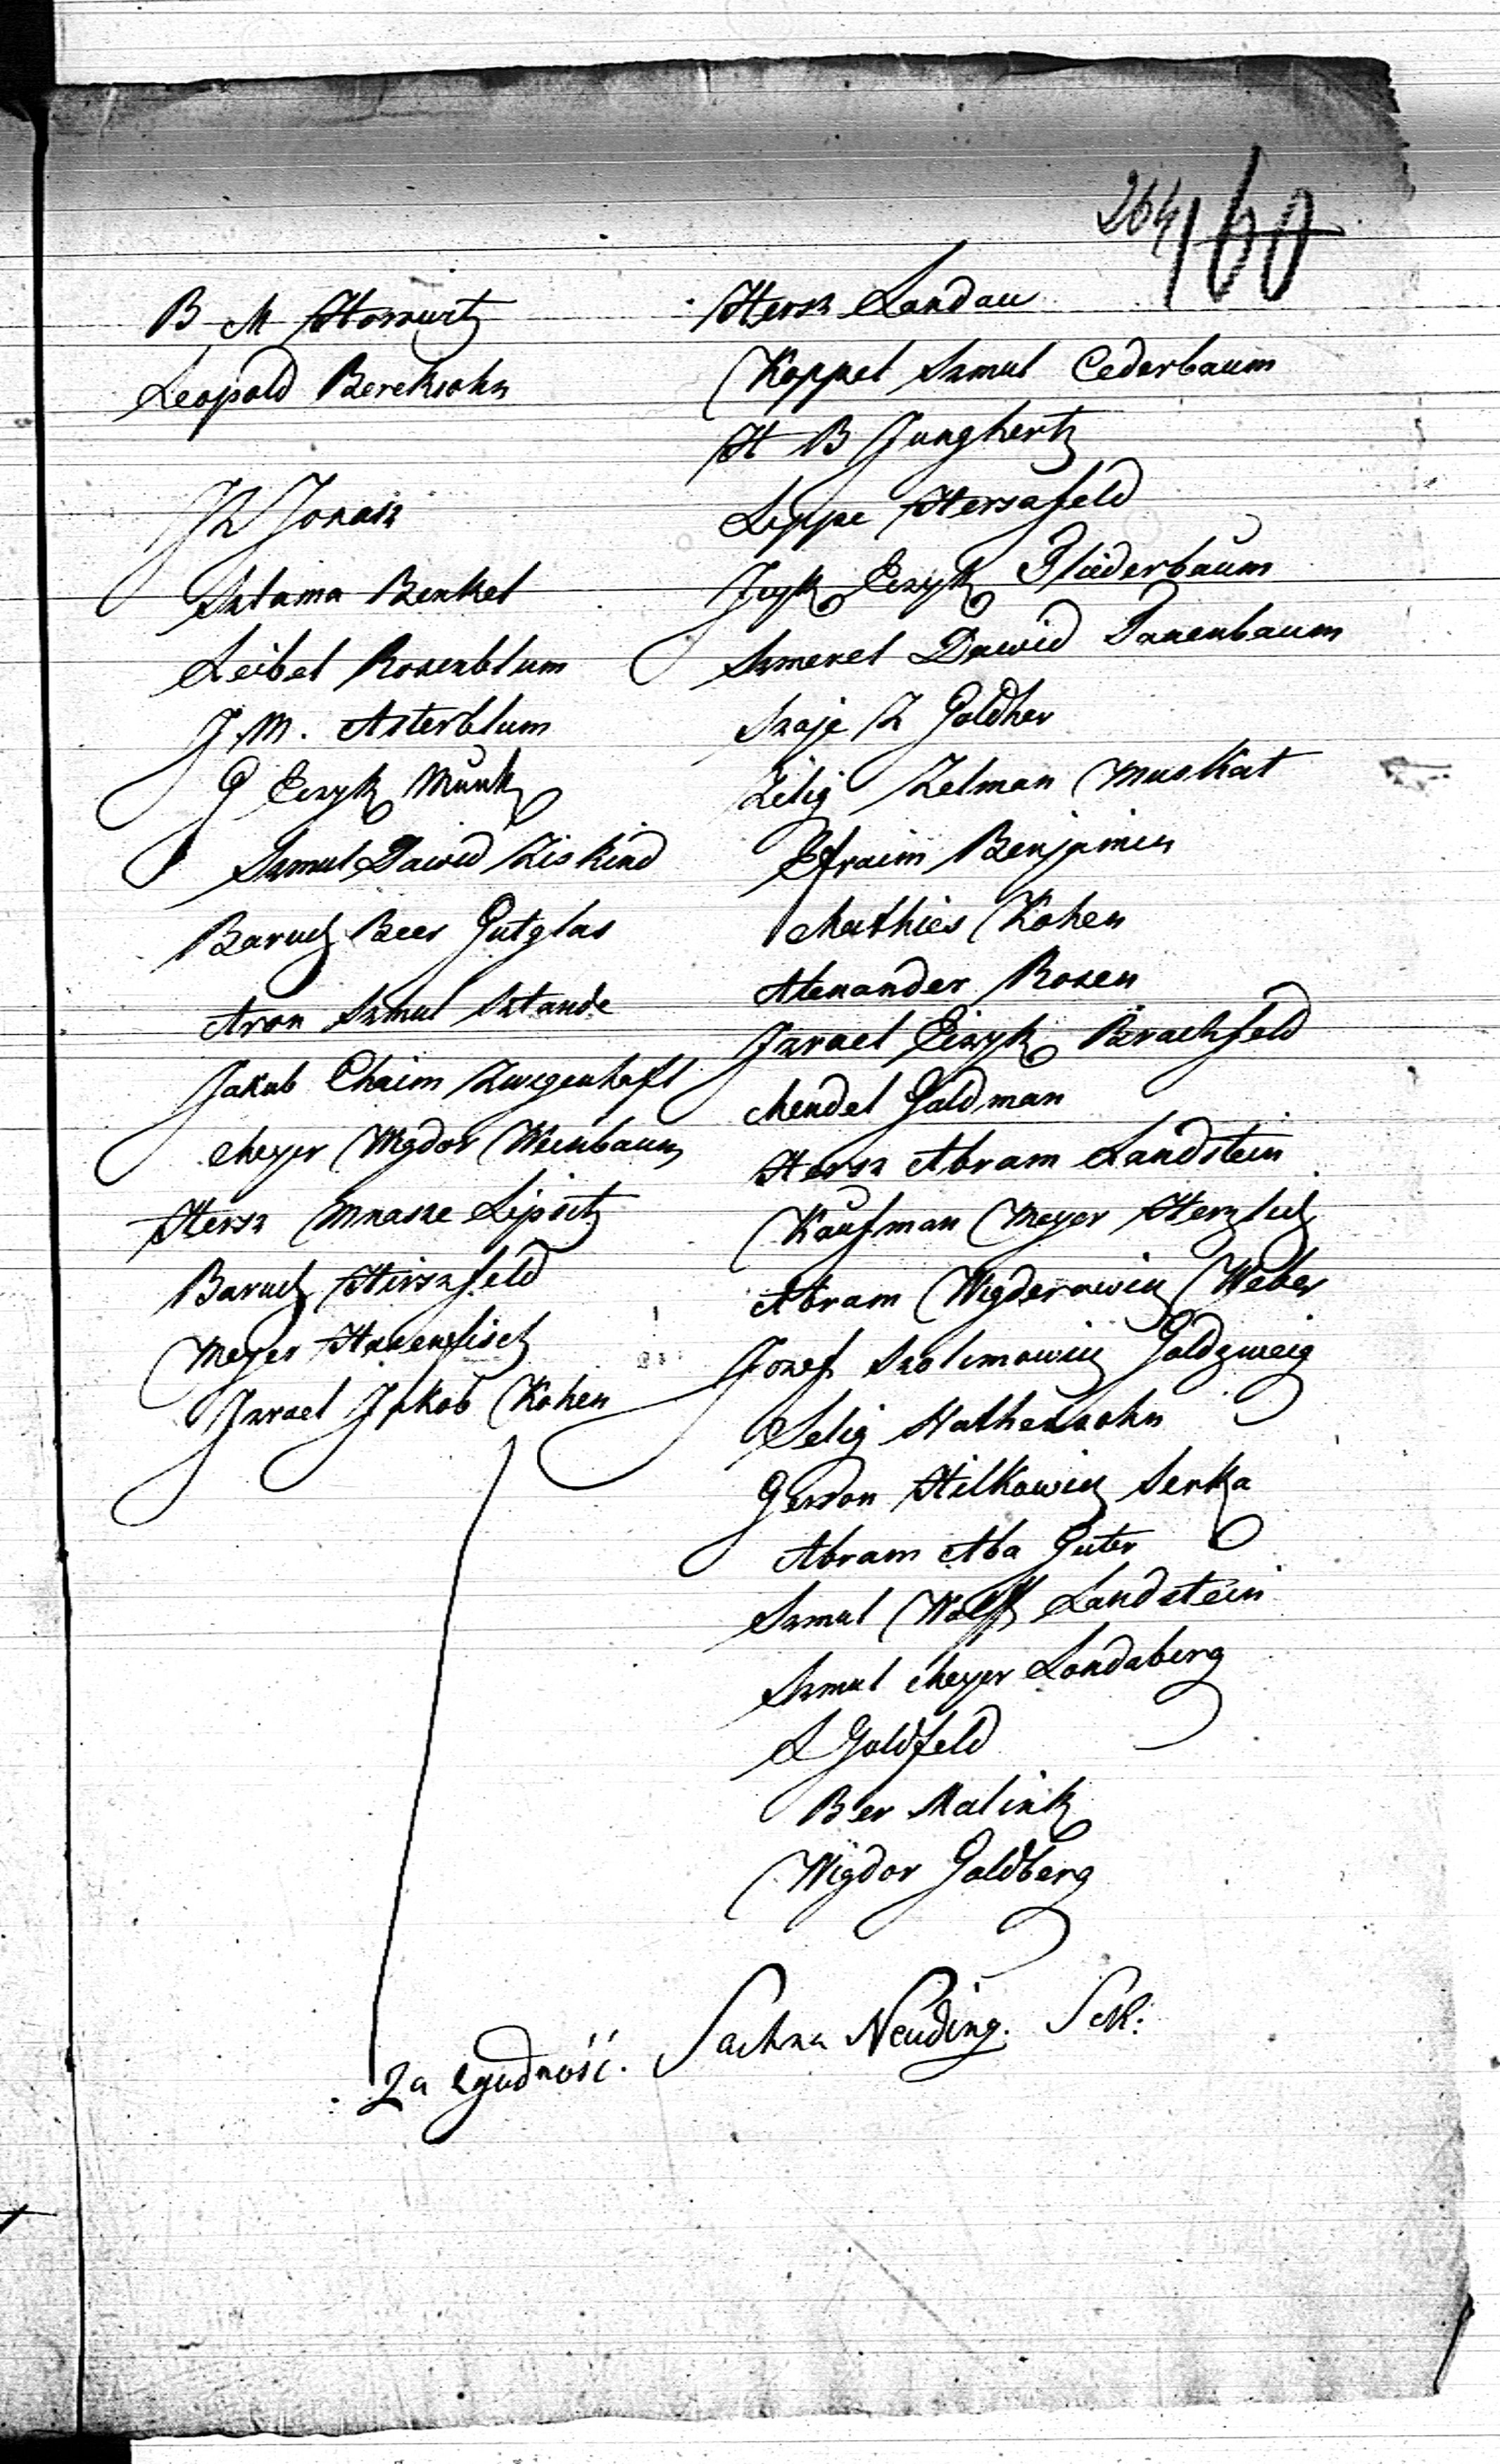 264 160
B M Horwitz
Leopold Bereksohn
JZ Jonasz
Szlama Benkel
Leibel Rozenblum
J. M. Asterblum
G Eizyk Munk
Szmul Dawid Ziskind
Baruch Beer Gutglas
Aron Szmul Sztande
Jakub Chaim Zweigenhaft
Meyer Wigdor Weinbaum
Hersz Mnasze Lipsitz
Baruch Hirszfeld
Meyer Hazenfisch
Izrael Jakob Kohen
Hersz Landau
Koppel Szmul Cederbaum
H B Junghertz
Lippe Herszfeld
Icyk Eizyk Fliederbaum
Szmerel Dawid Tanenbaum
Szaje Z Goldher
Zelig Zelman Muskat
Efraim Benjamin
Mathies Kohen
Alexander Rozen
Izrael Eizyk Brachfeld
Mendel Goldman
Hersz Abram Landstein
Kaufman Meyer Herzlich
Abram Wigderowicz Weber
Jozef Szolimowicz Goldzweig
Selig Nathensohn
Gerson Hilkowicz Serka
Abram Aba Guter
Szmul Wolff Landstein
Szmul Meyer Landsberg
L Goldfeld
Ber Malink
Wigdor Goldberg
Za zgodność. Sachna Neuding. Sek: